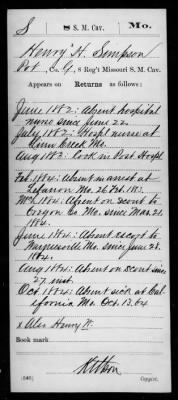 S 8 S. M. Cav. Mo.
Henry H. Simpson
Pvt., Co. G, 8 Reg't Missouri S. M. Cav.
Appears on
Returns as follows:
June 1862: Absent Hospital
nurse since June 22.
July 1862: Hospl nurse at
Linn Creek Mo.
Aug 1862: Cook in Post Hospl
Feb. 1864: Absent in arrest at
Lebanon Mo. 26 Feb.
Mch 1864: Absent on scout to
Oregon Co. Mo. since Mar. 21,
1864.
June 1864: Absent escort to
Waynesville Mo. since June 28.
1864.
Aug 1864: Absent on scout since
27 inst.
Oct 1864: Absent sick at Cal-
ifornia Mo. Oct. 13. 64
x Also Henry W.
Book mark:
(546) Copyist.